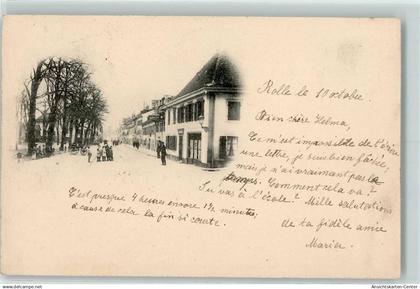 Rolle le 10 octobre.
Mon chère Helma,
Il m'est impossible de t'écrire
une lettre, je suis bien fâchée,
mais je n'ai vraiment pas le
temps. Comment cela va?
Tu vas à l'école? Mille salutations
de ta fidèle amie
Marier
C'est presque 4 heures encore 1½ minutes,
à cause de cela la fin si courte.
www.ansichtskarten-center.de
Ansichtskarten-Center